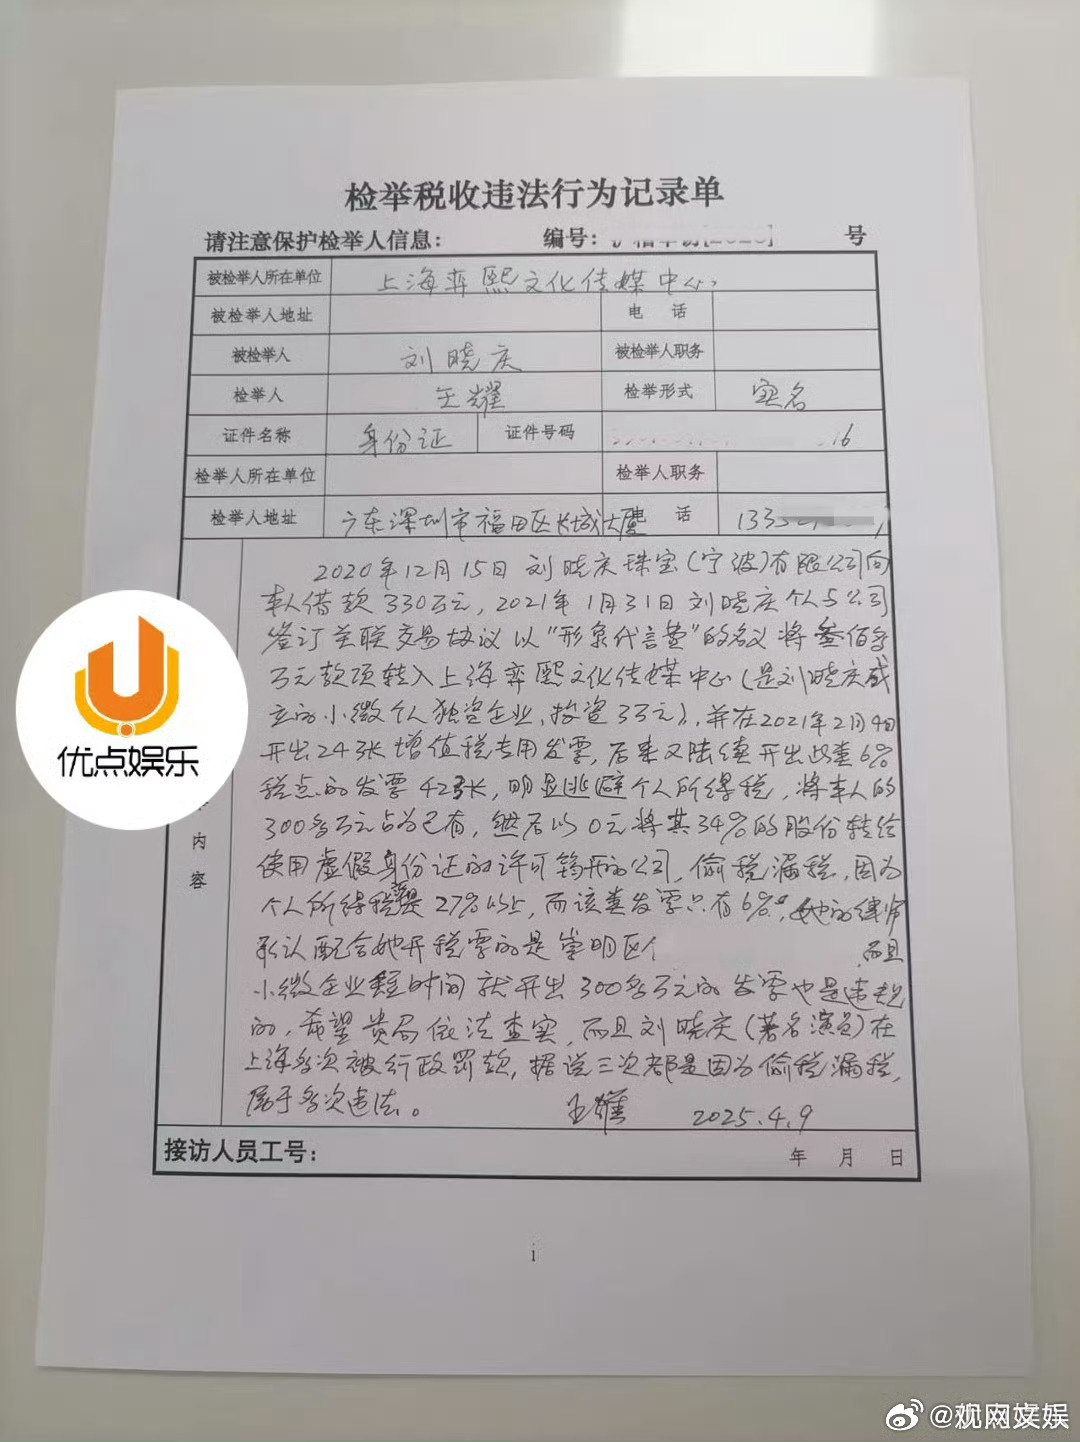 检举税收违法行为记录单
请注意保护检举人信息： 编号： 号
被检举人所在单位 上海弈熙文化传媒中心
被检举人地址 电 话
被检举人 刘晓庆 被检举人职务
检举人 王耀 检举形式 实名
证件名称 身份证 证件号码 16
检举人所在单位 检举人职务
检举人地址 广东深圳市福田区长城大厦 电 话 133
2020年12月15日刘晓庆珠宝(宁波)有限公司向
本人借款330万元，2021年1月31日刘晓庆个人与公司
签订关联交易协议以“形象代言费”的名义将叁佰多
万元款项转入上海弈熙文化传媒中心(是刘晓庆成
立的小微个人独资企业，投资3万元)，并在2021年2月4日
开出24张增值税专用发票，后来又陆续开出此类6%
税点的发票42张，明显逃避个人所得税，将本人的
300多万元占为己有，然后以0元将其34%的股份转给
使用虚假身份证的许可筠开的公司，偷税漏税，因为
个人所得税是27%以上，而该类发票只有6%，她的律师
承认配合她开税票的是崇明区个 而且
小微企业短时间就开出300多万元的发票也是违规
的，希望贵局依法查实，而且刘晓庆(著名演员)在
上海多次被行政罚款，据说三次都是因为偷税漏税，
属于多次违法。 王耀 2025.4.9
内
容
接访人员工号： 年 月 日
i
优点娱乐
@观网文娱